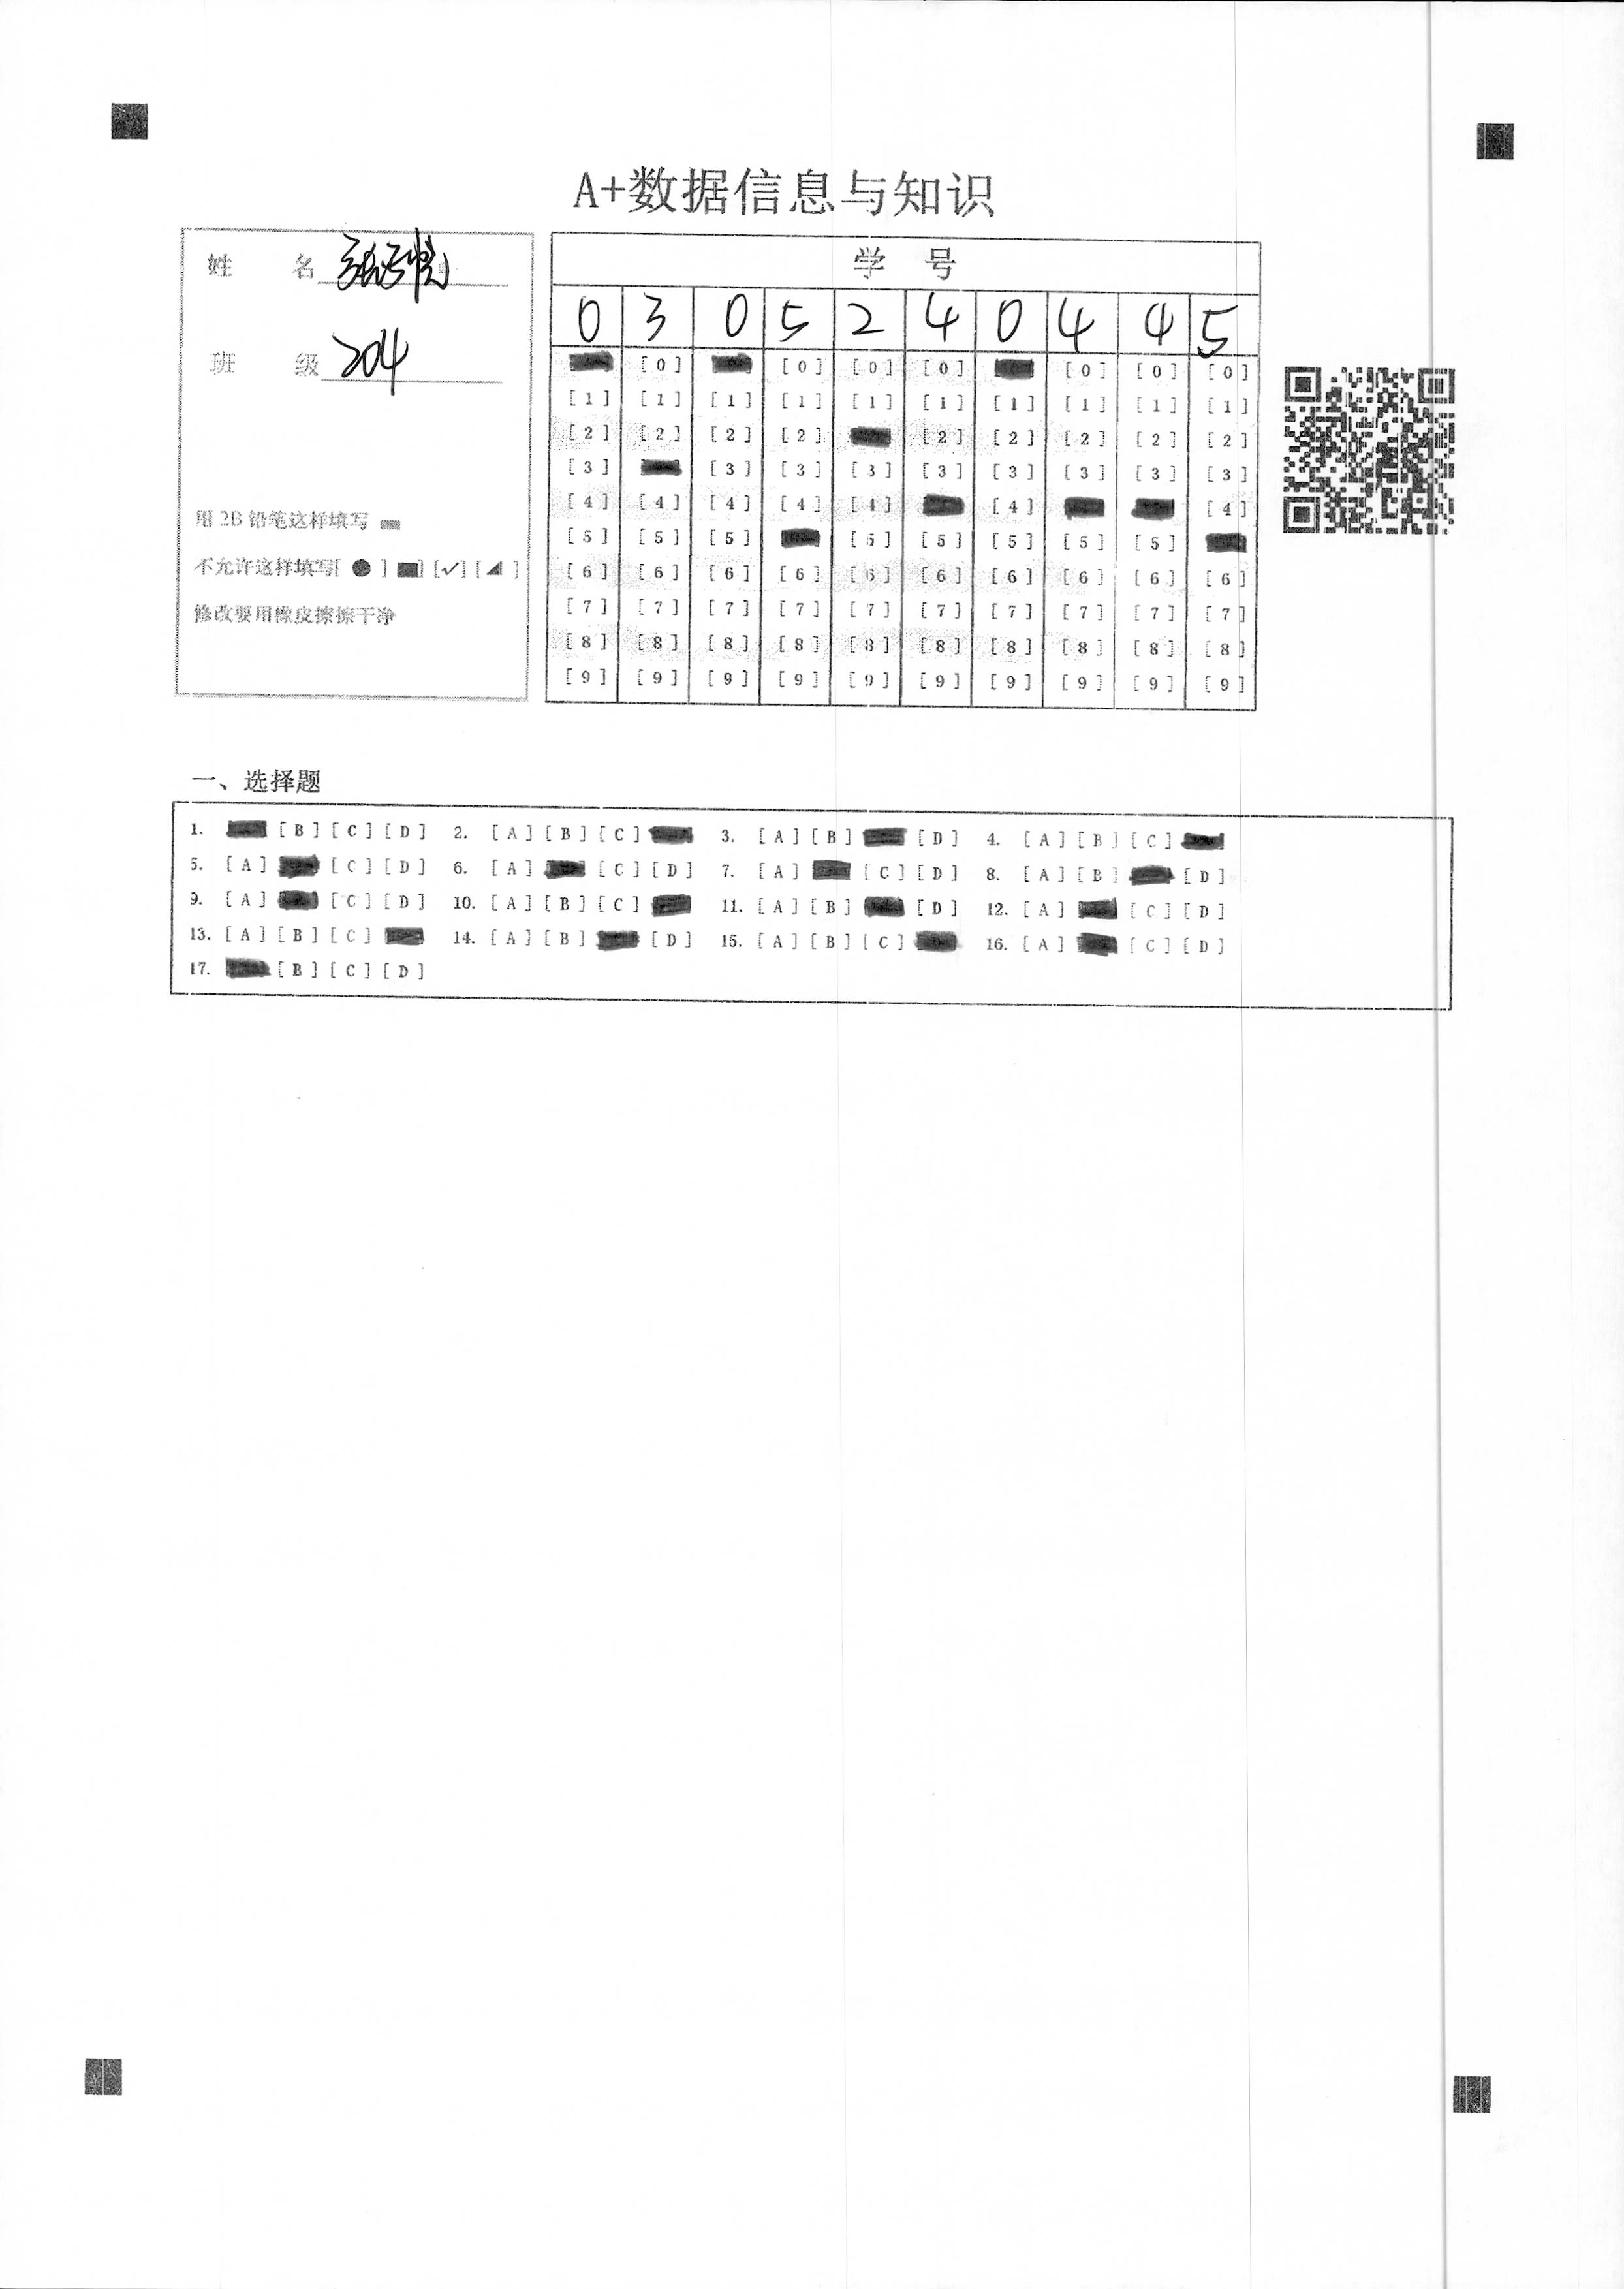 A+数据信息与知识
姓 名
班 级 204
用 2B 铅笔这样填写
不允许这样填写[ ● ] [■] [✓] [◢ ]
修改要用橡皮擦擦干净
学 号
0 3 0 5 2 4 0 4 4 5
[0] [0] [0] [0] [0] [0] [0]
[1] [1] [1] [1] [1] [1] [1] [1] [1] [1]
[2] [2] [2] [2] [2] [2] [2] [2] [2]
[3] [3] [3] [3] [3] [3] [3] [3] [3]
[4] [4] [4] [4] [4] [4] [4]
[5] [5] [5] [5] [5] [5] [5] [5]
[6] [6] [6] [6] [6] [6] [6] [6] [6] [6]
[7] [7] [7] [7] [7] [7] [7] [7] [7] [7]
[8] [8] [8] [8] [8] [8] [8] [8] [8] [8]
[9] [9] [9] [9] [9] [9] [9] [9] [9] [9]
一、选择题
1. [B] [C] [D] 2. [A] [B] [C] 3. [A] [B] [D] 4. [A] [B] [C]
5. [A] [C] [D] 6. [A] [C] [D] 7. [A] [C] [D] 8. [A] [B] [D]
9. [A] [C] [D] 10. [A] [B] [C] 11. [A] [B] [D] 12. [A] [C] [D]
13. [A] [B] [C] 14. [A] [B] [D] 15. [A] [B] [C] 16. [A] [C] [D]
17. [B] [C] [D]